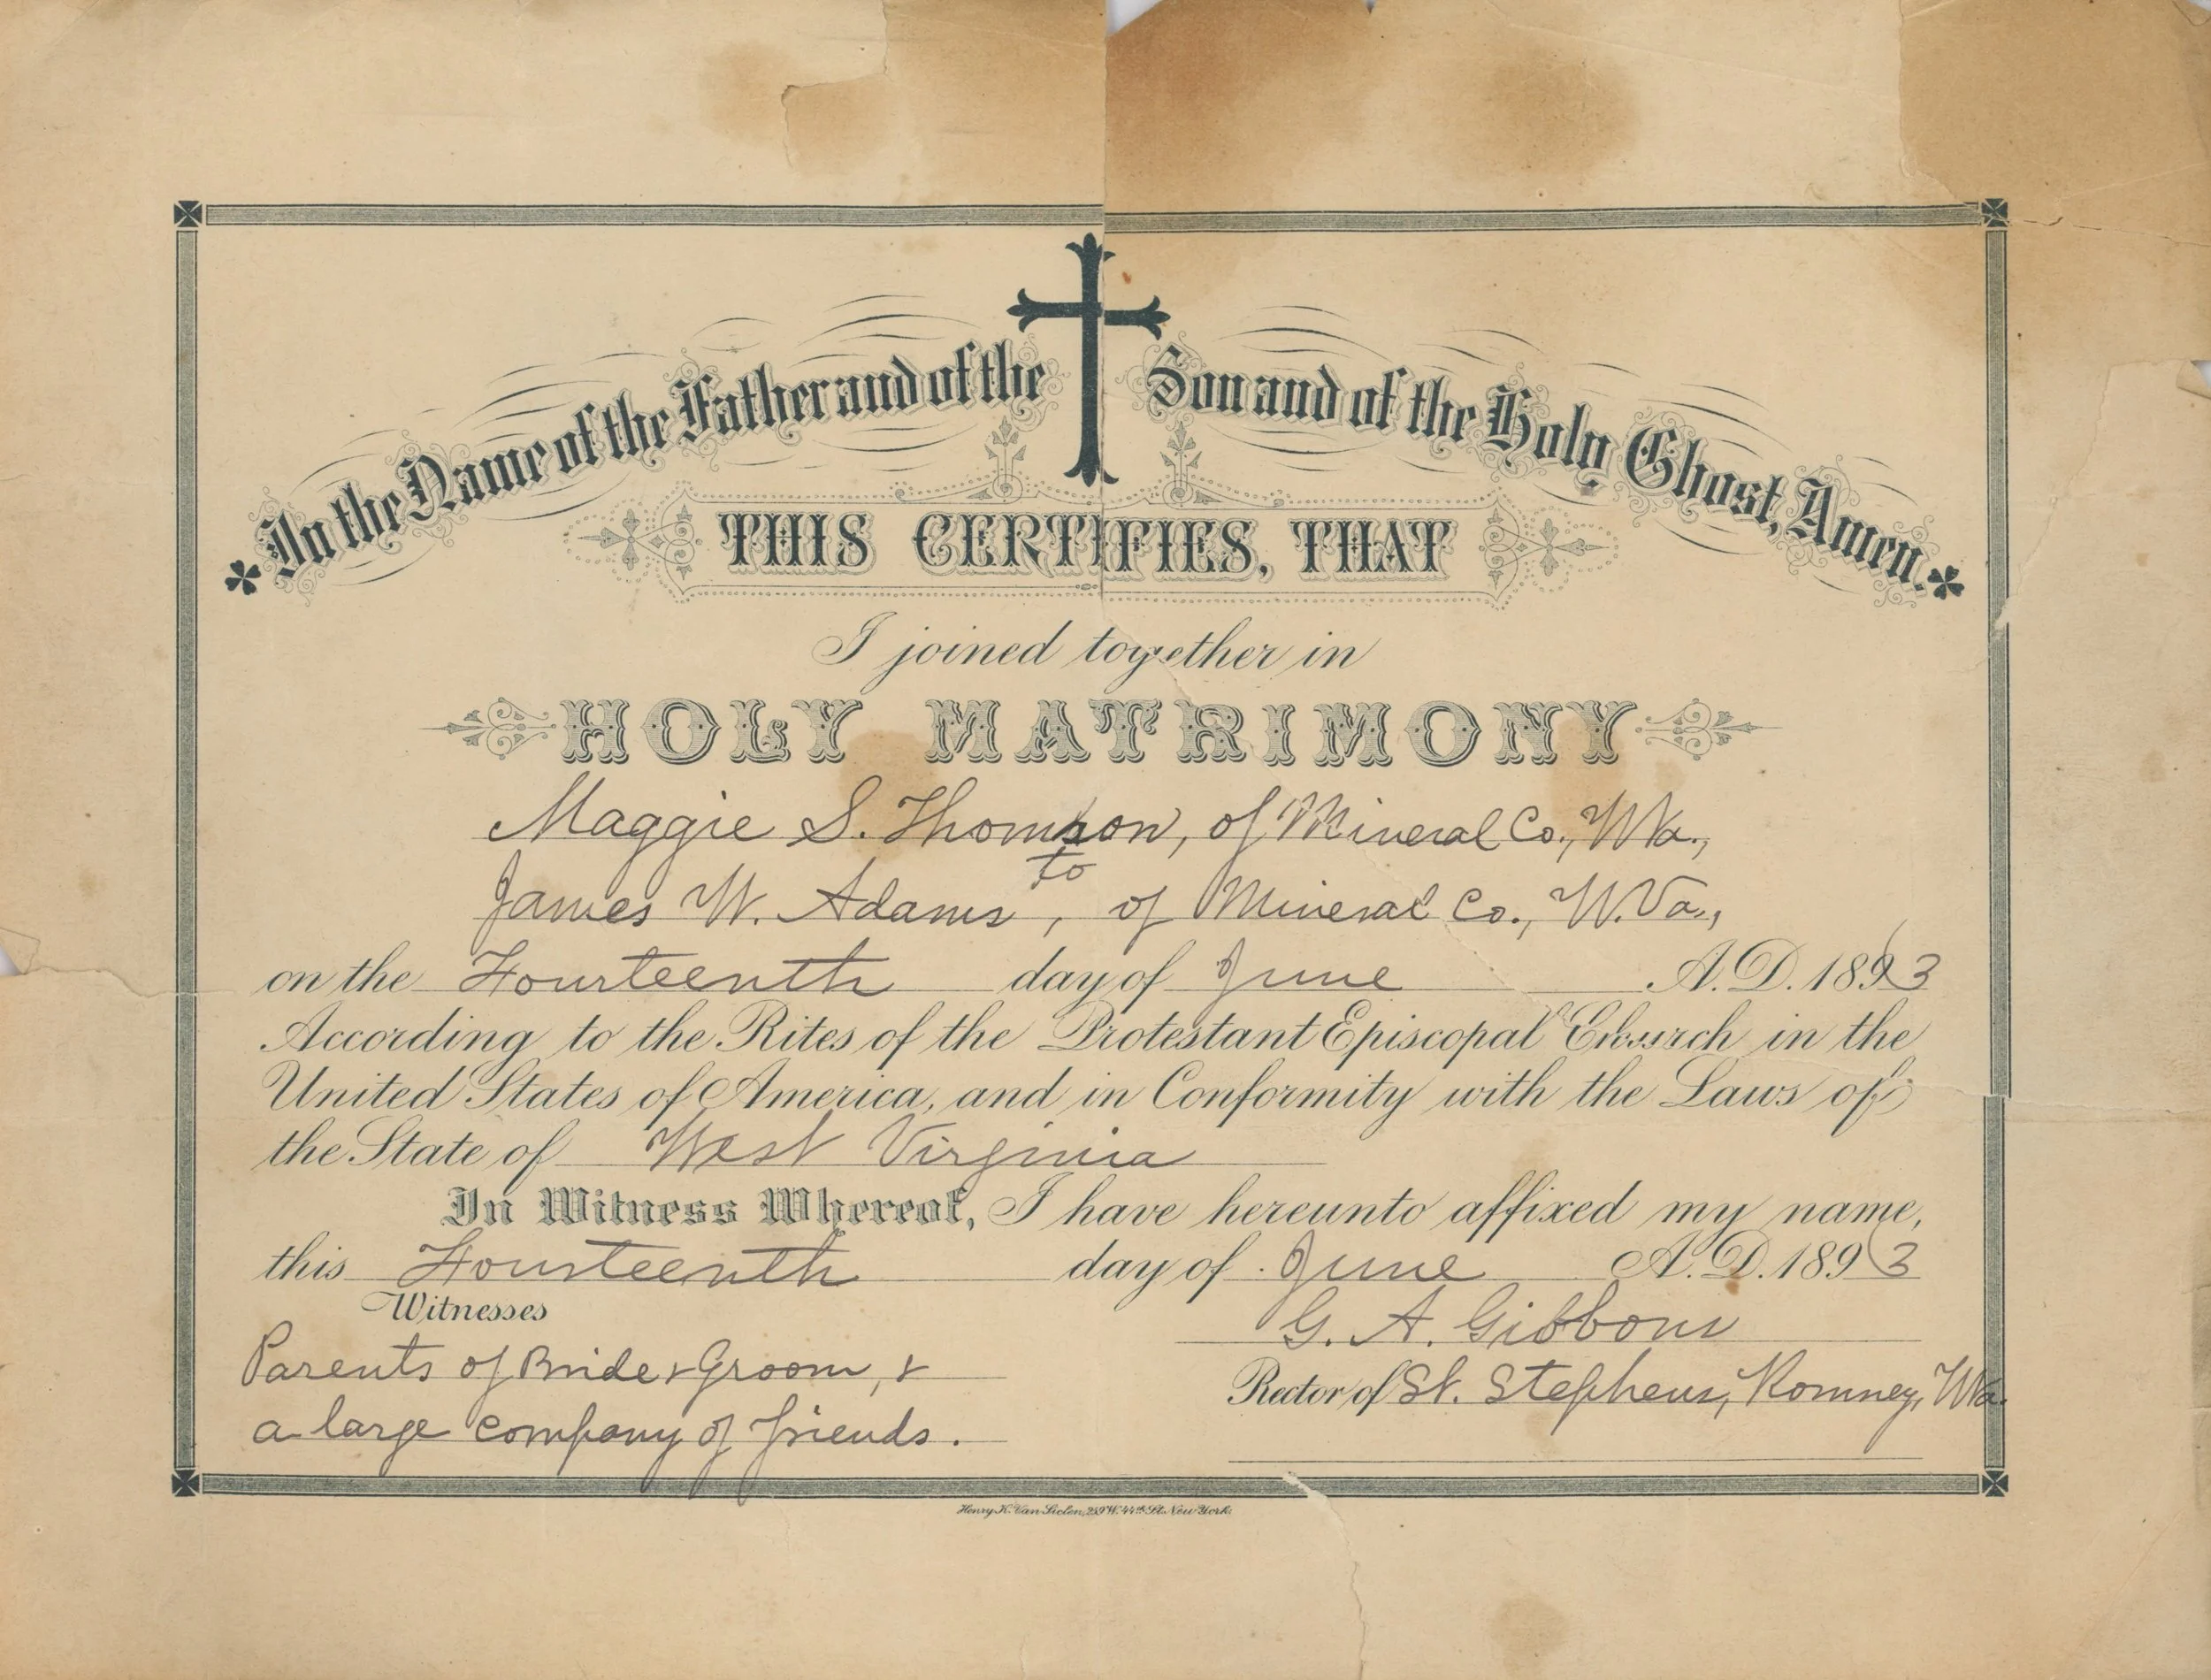 In the Name of the Father and of the Son and of the Holy Ghost, Amen.
THIS CERTIFIES, THAT
I joined together in
HOLY MATRIMONY
Maggie S. Thomson, of Mineral Co., W Va.,
to
James W. Adams, of Mineral Co., W. Va.,
on the Fourteenth day of June A.D. 1893
According to the Rites of the Protestant Episcopal Church in the
United States of America, and in Conformity with the Laws of
the State of West Virginia
In Witness Whereof, I have hereunto affixed my name,
this Fourteenth day of June A.D. 1893
Witnesses
G. A. Gibbons
Parents of Bride & Groom, &
Rector of St. Stephens, Romney, W Va.
a large company of friends.
Henry K. Van Siclen, 259 W. 44th St. New York.